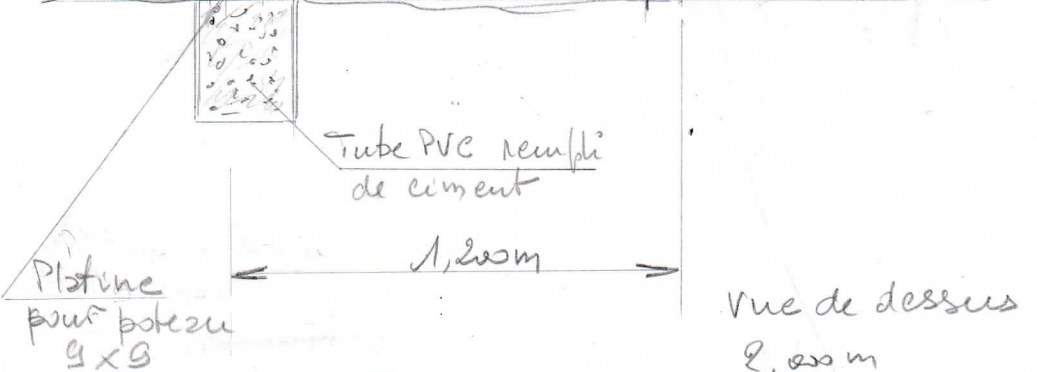 Tube PVC rempli
de ciment
1,200m
Platine
pour poteau
9x9
Vue de dessus
2,000m